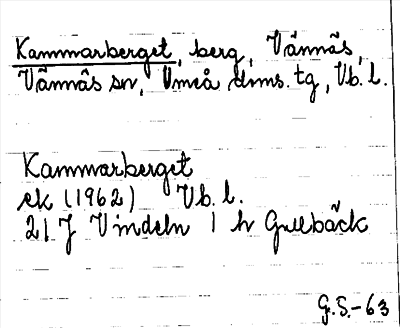 Kammarberget, berg, Vännäs,
Vännäs sn, Umeå dms. tg, Vb. l.
Kammarberget
ek (1962) Vb. l.
21 J Vindeln 1 h Gullbäck
G.S.-63